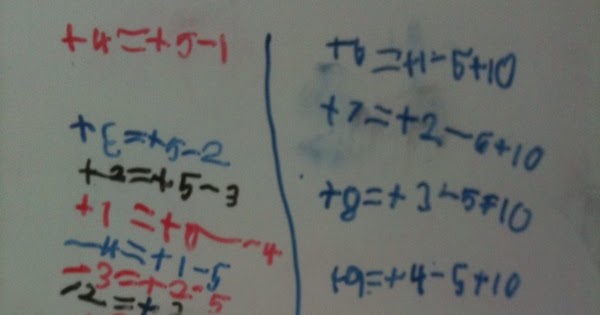 +4=+5-1
+3=+5-2
+2=+5-3
+1=+5-4
-4=+1-5
-3=+2-5
-2=+3
+6=+1-5+10
+7=+2-5+10
+8=+3-5+10
+9=+4-5+10